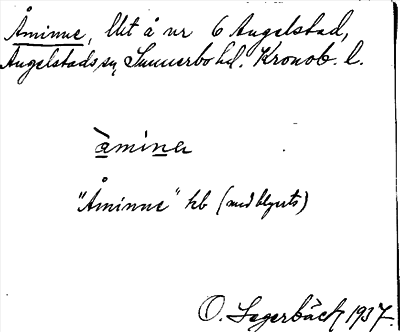 Åminne, lht å nr 6 Angelstad,
Angelstads sn, Sunnerbo hd. Kronob. l.
àmina
"Åminne" kb (med blyerts)
O. Lagerbäck 1937.